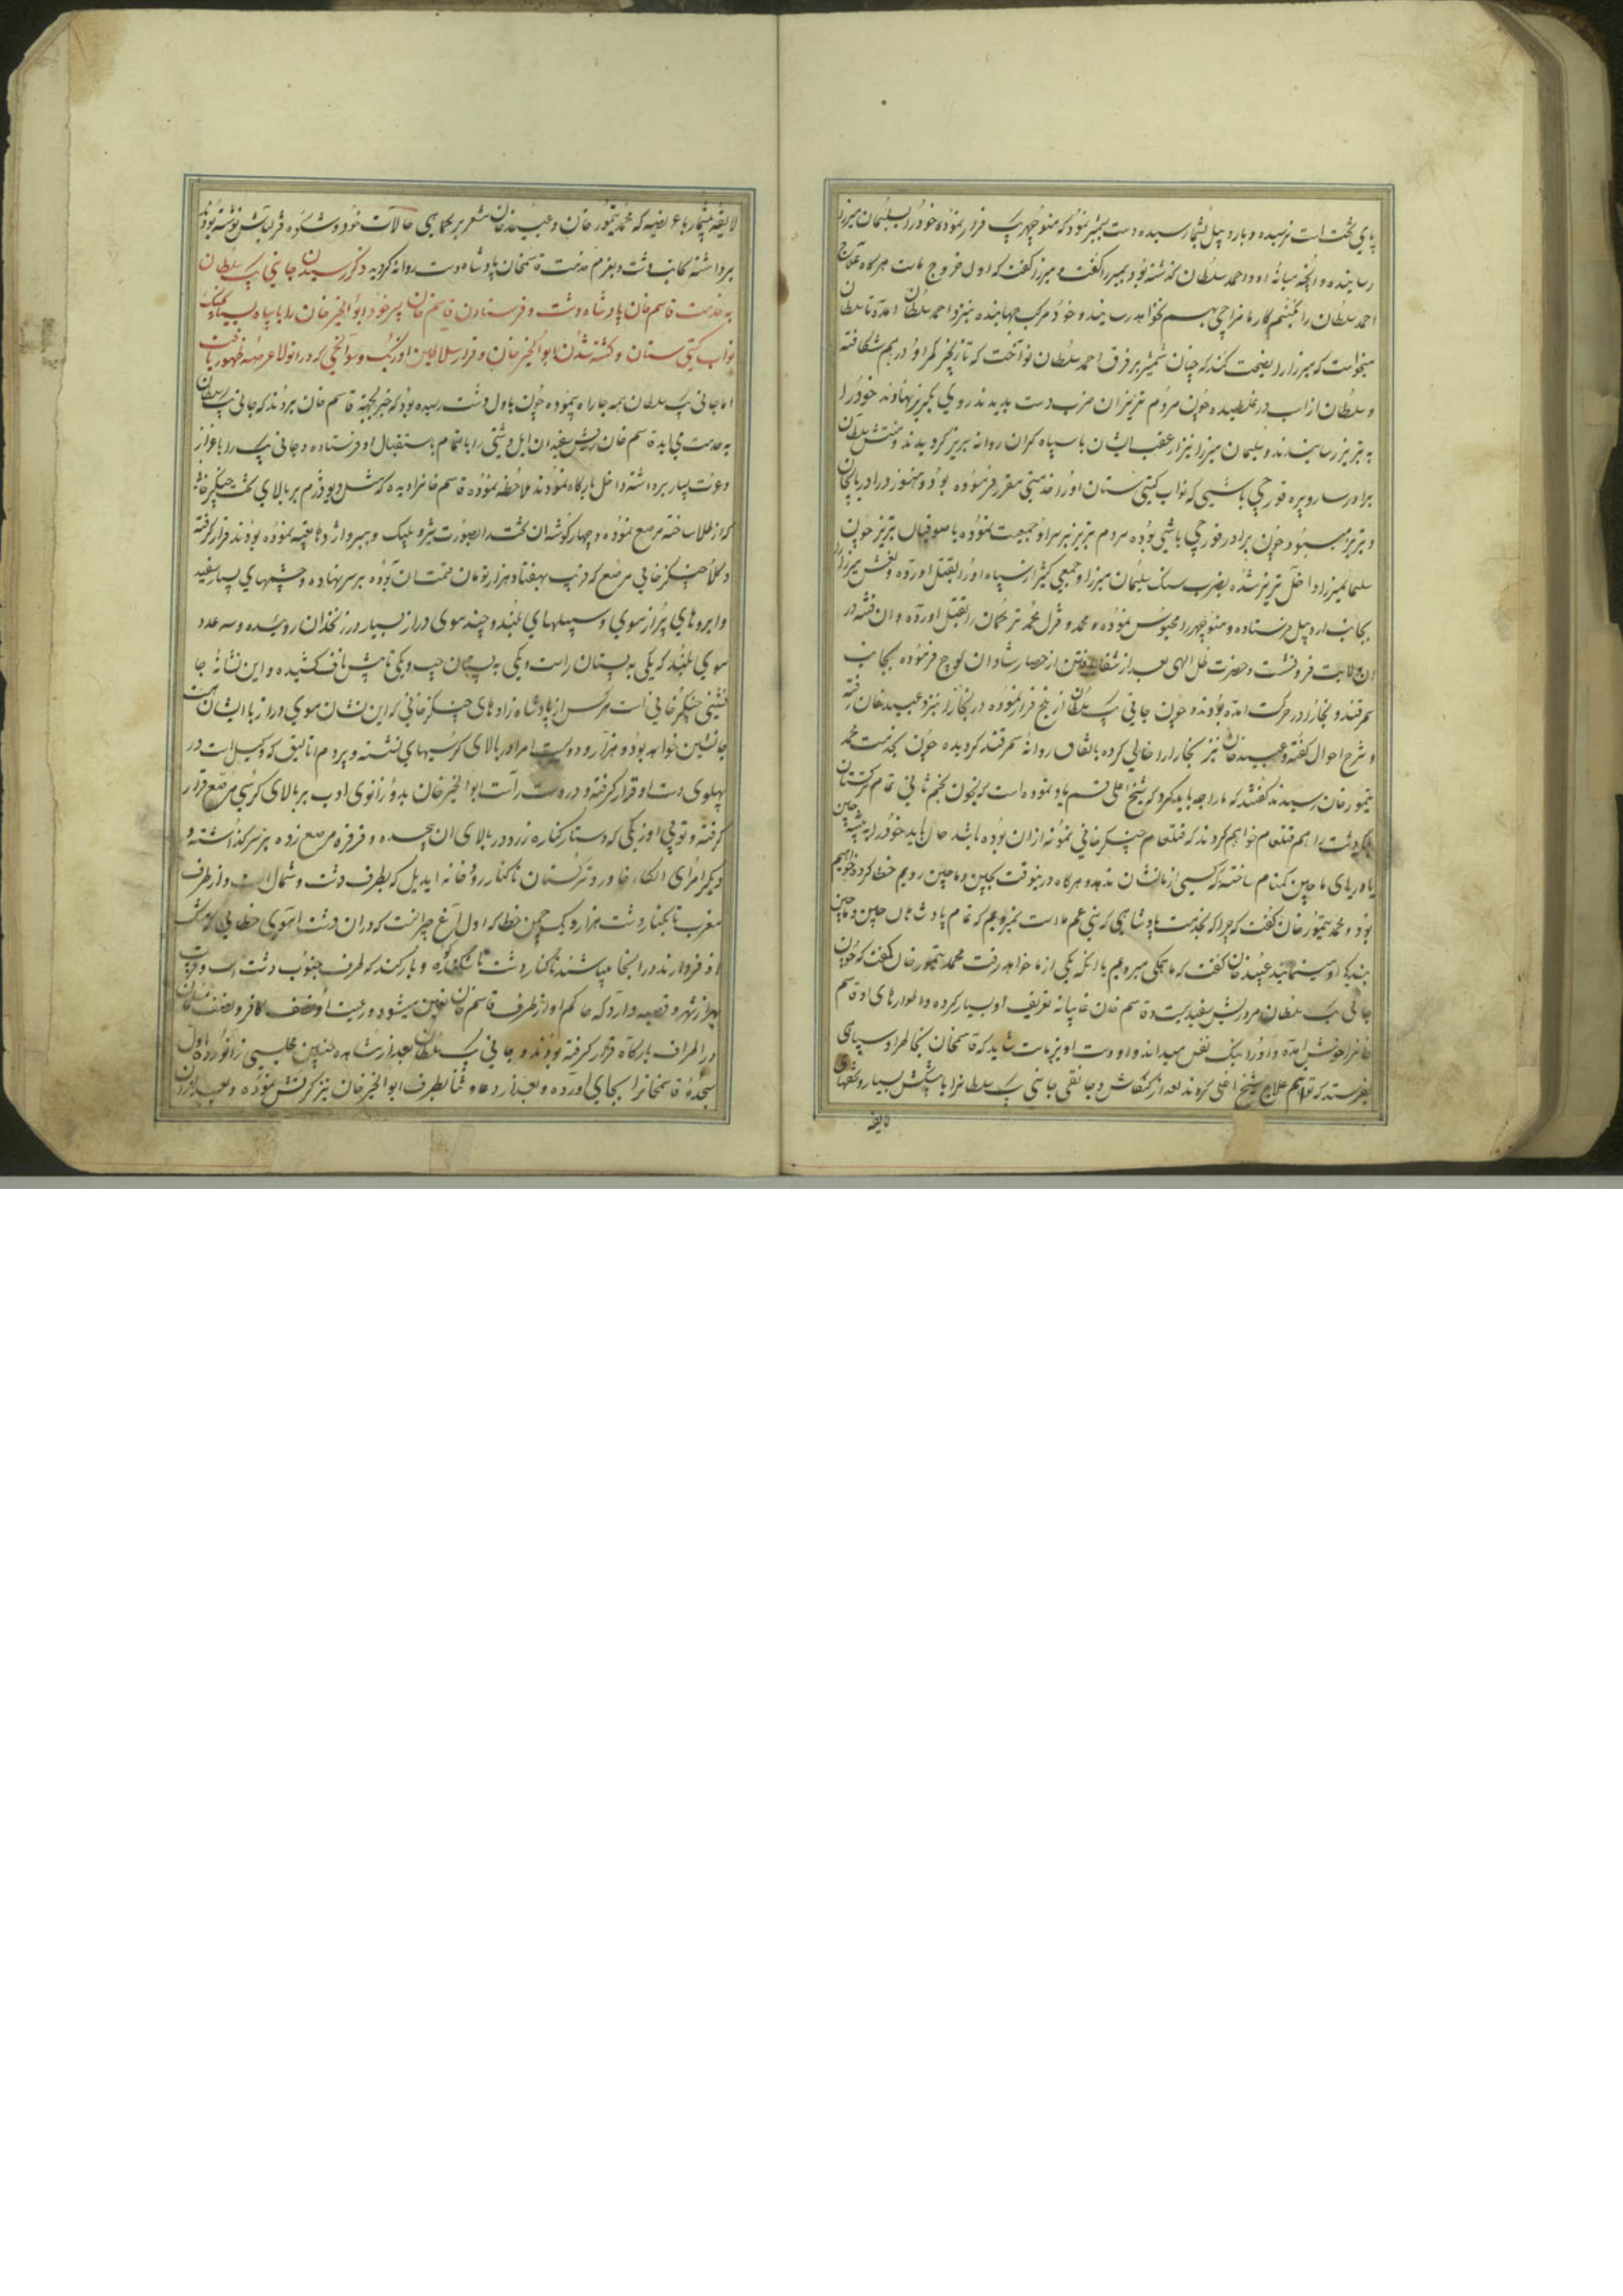 پای تخت است نرسیده و باردبیل بشمار سیده دست بمیر نمود که منوچهر بیک فرار نموده خود را بسلیمان میرزا
رسانیده و آنچه میانه او و احمد سلطان گذشته بود بمیرزا گفت و میرزا گفت که اول خروج ماست هرگاه علاج
احمد سلطان را نکنیم کار ما
میخواست که میرزا را نصیحت کند که چنان شمشیر بر فرق احمد سلطان نواخت که تا زنجیر کمر او را درهم شکافته
و سلطان از اسب در غلطیده چون مردم تبریز آن ضرب دست بدیدند روی بگریز نهادند خود را
به تبریز رسانیدند و سلیمان میرزا نیز از عقب ایشان با سپاه گران روانه تبریز گردیدند و منتش سلطان
برادر سارو پیره قورچی باشی که نواب گیتی ستان او را خدمتی مقرر فرموده بود و هنوز در آذربایجان
و تبریز میبود چون برادر قورچی باشی بوده مردم تبریز بر سر او جمعیت نموده با صوفیان تبریز چون
سلیمان میرزا داخل تبریز شده بضرب سنگ سلیمان میرزا و جمعی کثیر از سپاه او را بقتل آورده و نعش میرزا را
بجانب اردبیل فرستاده و منوچهر را محبوس نموده و محمد و قزل محمد ترکمان را بقتل آورده و آن فتنه در
آن ولایت فرو نشست و حضرت ظل الهی بعد از شفا یافتن از حصار شادمان کوچ فرموده بجانب
سمرقند و بخارا در حرکت آمده بودند و چون جانی بیک سلطان از بلخ فرار نموده در بخارا نیز و عبید خان رفته
و شرح احوال گفته و عبید خان نیز بخارا را خالی کرده باتفاق روانه سمرقند گردیده چون بخدمت محمد
تیمور خان رسیدند گفتند که ما را چه باید کرد که شیخ اغلی قسم یاد نموده است که بخون نجم ثانی تمام ترکستان
بلکه دشت را هم قتلعام خواهم کرد ند که قتلعام چنگیز خانی نمونه از آن بوده باشد حال باید خود را به بیشه چین
یا دریای ماچین گمنام ساخته که کسی از ما نشان ندهد و هرگاه در نیوقت بچین و ماچین رویم خطا کرده خواهیم
بود و محمد تیمور خان گفت که چرا که بخدمت پادشاهی که بنی عم ما است نمیرویم که تمام پادشاهان چین و ماچین
بندگی او مینمایند عبید خان گفت که ما همگی میرویم یا آنکه یکی از ما خواهد رفت محمد تیمور خان گفت که چون
جانی بیک سلطان مرد ریش سفیدیست و قاسم خان غایبانه تعریف او بسیار کرده و اطوارهای او قاسم
خانرا خوش آمده و او را نیک نفس میداند و او دست آویز ماست شاید که قاسمخان بخاطر او سپاهی
بفرستد که توانیم علاج شیخ اغلی کردن بعد از کنکاش و جانقی جانی بیک سلطانرا با پیشکش بسیار و تحفهای
لایقه
لایقه بیشمار با عریضه که محمد تیمور خان و عبید خان مشعر بر گمراهی حالات خود و شکوه قزلباش نوشته بودند
برداشته بجانب دشت و بعزم خدمت قاسمخان پادشاه دشت روانه گردید ذکر رسیدن جانی بیک سلطان
به خدمت قاسم خان پادشاه دشت و فرستادن قاسم خان پسر خود ابو الخیر خان را با سپاه بسیار بجنگ
نواب گیتی ستان و کشته شدن ابو الخیر خان و فرار سلاطین اوزبک و سوانحی که در آنولا عرصه ظهور یافت
اما جانی بیک سلطان همه جا راه پیموده چون باول دشت رسیده بود که خبر بجهة قاسم خان بردند که جانی بیک سلطان
به خدمت می آید قاسم خان ریش سفیدان ایل دشتی را با تمام باستقبال او فرستاده و جانی بیک را باعزاز
و عزت بسیار برداشته داخل بارگاه نمودند ملاحظه نموده قاسم خانرا دیده که مثل دیو دژم بر بالای تخت چنگیز خانی
که از طلا ساخته مرصع نموده و چهار گوشه آن تخت را بصورت شیر و پلنگ و ببر و اژدها تعبیه نموده بودند قرار گرفته
و کلاه چنگیز خانی مرصع که قریب بهفتاد هزار تومان قیمت آن بوده بر سر نهاده و چشمهای بسیار سفید
و ابروهای پر از موی و سبیلهای بلند و چند موی دراز بسیار در زنخدان روئیده و سه عدد
موی بلند که یکی به پستان راست و یکی به پستان چپ و یکی تا پیش ناف کشیده و این نشانه جا
نشینی چنگیز خانی است هر کس از پادشاه زادهای چنگیز خانی که این نشان موی دراز با ایشان هست
جانشین خواهد بود و هزار و دویست امرا در بالای کرسیهای نشسته و پردم اتالیق که وکیل است در
پهلوی دست او قرار گرفته و در دست راست ابو الخیر خان بدو زانوی ادب بر بالای کرسی مرصع قرار
گرفته و توپی اوزبکی که دستار کناره زرد در بالای آن پیچیده و فرفره مرصع زده بر سر گذاشته و
دیگر امرای الکاء خاور و ترکستان تا کنار رودخانه ایدیل که بطرف دشت و شمال است و از طرف
مغرب تا بکنار دشت هزار و یک چمن خطا که اول آغ چرانست که در آن دشت آهوی خطایی که مشک
اذفر دارند در آنجا میباشند تا کنار دشت و بارکند که طرف جنوب دشت است و قریب
بهزار شهر و قصبه دارد که حاکم او از طرف قاسم خان تعیین میشود و رعیت او نصف کافر و نصف مسلمان
در اطراف بارگاه قرار گرفته بودند و جانی بیک سلطان بعد از مشاهده چنین مجلسی زانو زده باول
سجده قاسمخانرا بجای آورده و بعد از دعا و ثنا بطرف ابو الخیر خان نیز کرنش نموده و بعد از آن